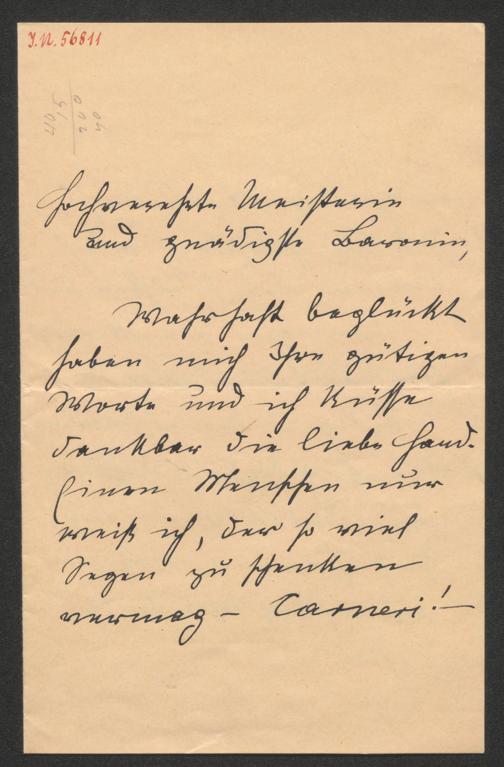 I.N. 56811
Hochverehrte Meisterin
und gnädigste Baronin,
Wahrhaft beglückt
haben mich Ihre gütigen
Worte und ich küsse
dankbar die liebe Hand.
Einen Menschen nur
weiß ich, der so viel
Segen zu schenken
vermag – Carneri! –